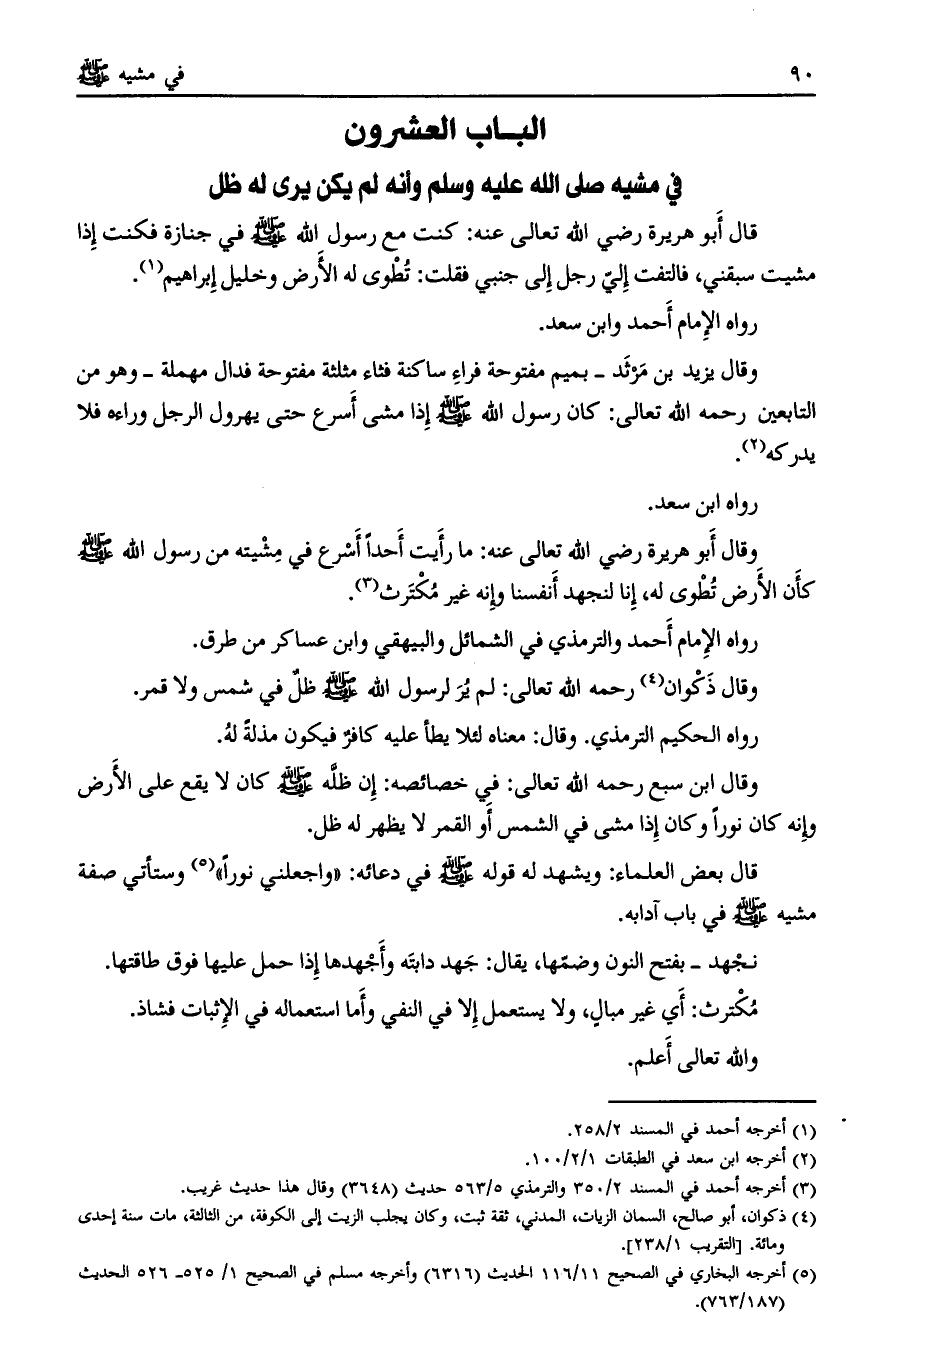 ٩٠
في مشيه ﷺ
البـاب العشرون
في مشيه صلى الله عليه وسلم وأنه لم يكن يرى له ظل
قال أبو هريرة رضي الله تعالى عنه: كنت مع رسول الله ﷺ في جنازة فكنت إذا
مشيت سبقني، فالتفت إليّ رجل إلى جنبي فقلت: تُطْوى له الأرض وخليل إبراهيم(١).
رواه الإمام أحمد وابن سعد.
وقال يزيد بن مَرْثَد ـ بميم مفتوحة فراءِ ساكنة فثاء مثلثة مفتوحة فدال مهملة ـ وهو من
التابعين رحمه الله تعالى: كان رسول الله ﷺ إذا مشى أسرع حتى يهرول الرجل وراءه فلا
يدركه(٢).
رواه ابن سعد.
وقال أبو هريرة رضي الله تعالى عنه: ما رأيت أحداً أسْرع في مِشْيته من رسول الله ﷺ
كأن الأرض تُطْوى له، إنا لنجهد أنفسنا وإنه غير مُكْتَرث(٣).
رواه الإمام أحمد والترمذي في الشمائل والبيهقي وابن عساكر من طرق.
وقال ذَكْوان(٤) رحمه الله تعالى: لم يُرَ لرسول الله ﷺ ظلٌ في شمس ولا قمر.
رواه الحكيم الترمذي. وقال: معناه لئلا يطأ عليه كافرٌ فيكون مذلةً لهُ.
وقال ابن سبع رحمه الله تعالى: في خصائصه: إن ظلَّه ﷺ كان لا يقع على الأرض
وإنه كان نوراً وكان إذا مشى في الشمس أو القمر لا يظهر له ظل.
قال بعض العلماء: ويشهد له قوله ﷺ في دعائه: «واجعلني نوراً»(٥) وستأتي صفة
مشيه ﷺ في باب آدابه.
نجْهد ـ بفتح النون وضمّها، يقال: جَهد دابتَه وأجْهدها إذا حمل عليها فوق طاقتها.
مُكْترث: أي غير مبالٍ، ولا يستعمل إلا في النفي وأما استعماله في الإثبات فشاذ.
والله تعالى أعلم.
(١) أخرجه أحمد في المسند ٢٥٨/٢.
(٢) أخرجه ابن سعد في الطبقات ١٠٠/٢/١.
(٣) أخرجه أحمد في المسند ٣٥٠/٢ والترمذي ٥٦٣/٥ حديث (٣٦٤٨) وقال هذا حديث غريب.
(٤) ذكوان، أبو صالح، السمان الزيات، المدني، ثقة ثبت، وكان يجلب الزيت إلى الكوفة، من الثالثة، مات سنة إحدى
ومائة. [التقريب ٢٣٨/١].
(٥) أخرجه البخاري في الصحيح ١١٦/١١ الحديث (٦٣١٦) وأخرجه مسلم في الصحيح ١/ ٥٢٥ـ ٥٢٦ الحديث
(٧٦٣/١٨٧).